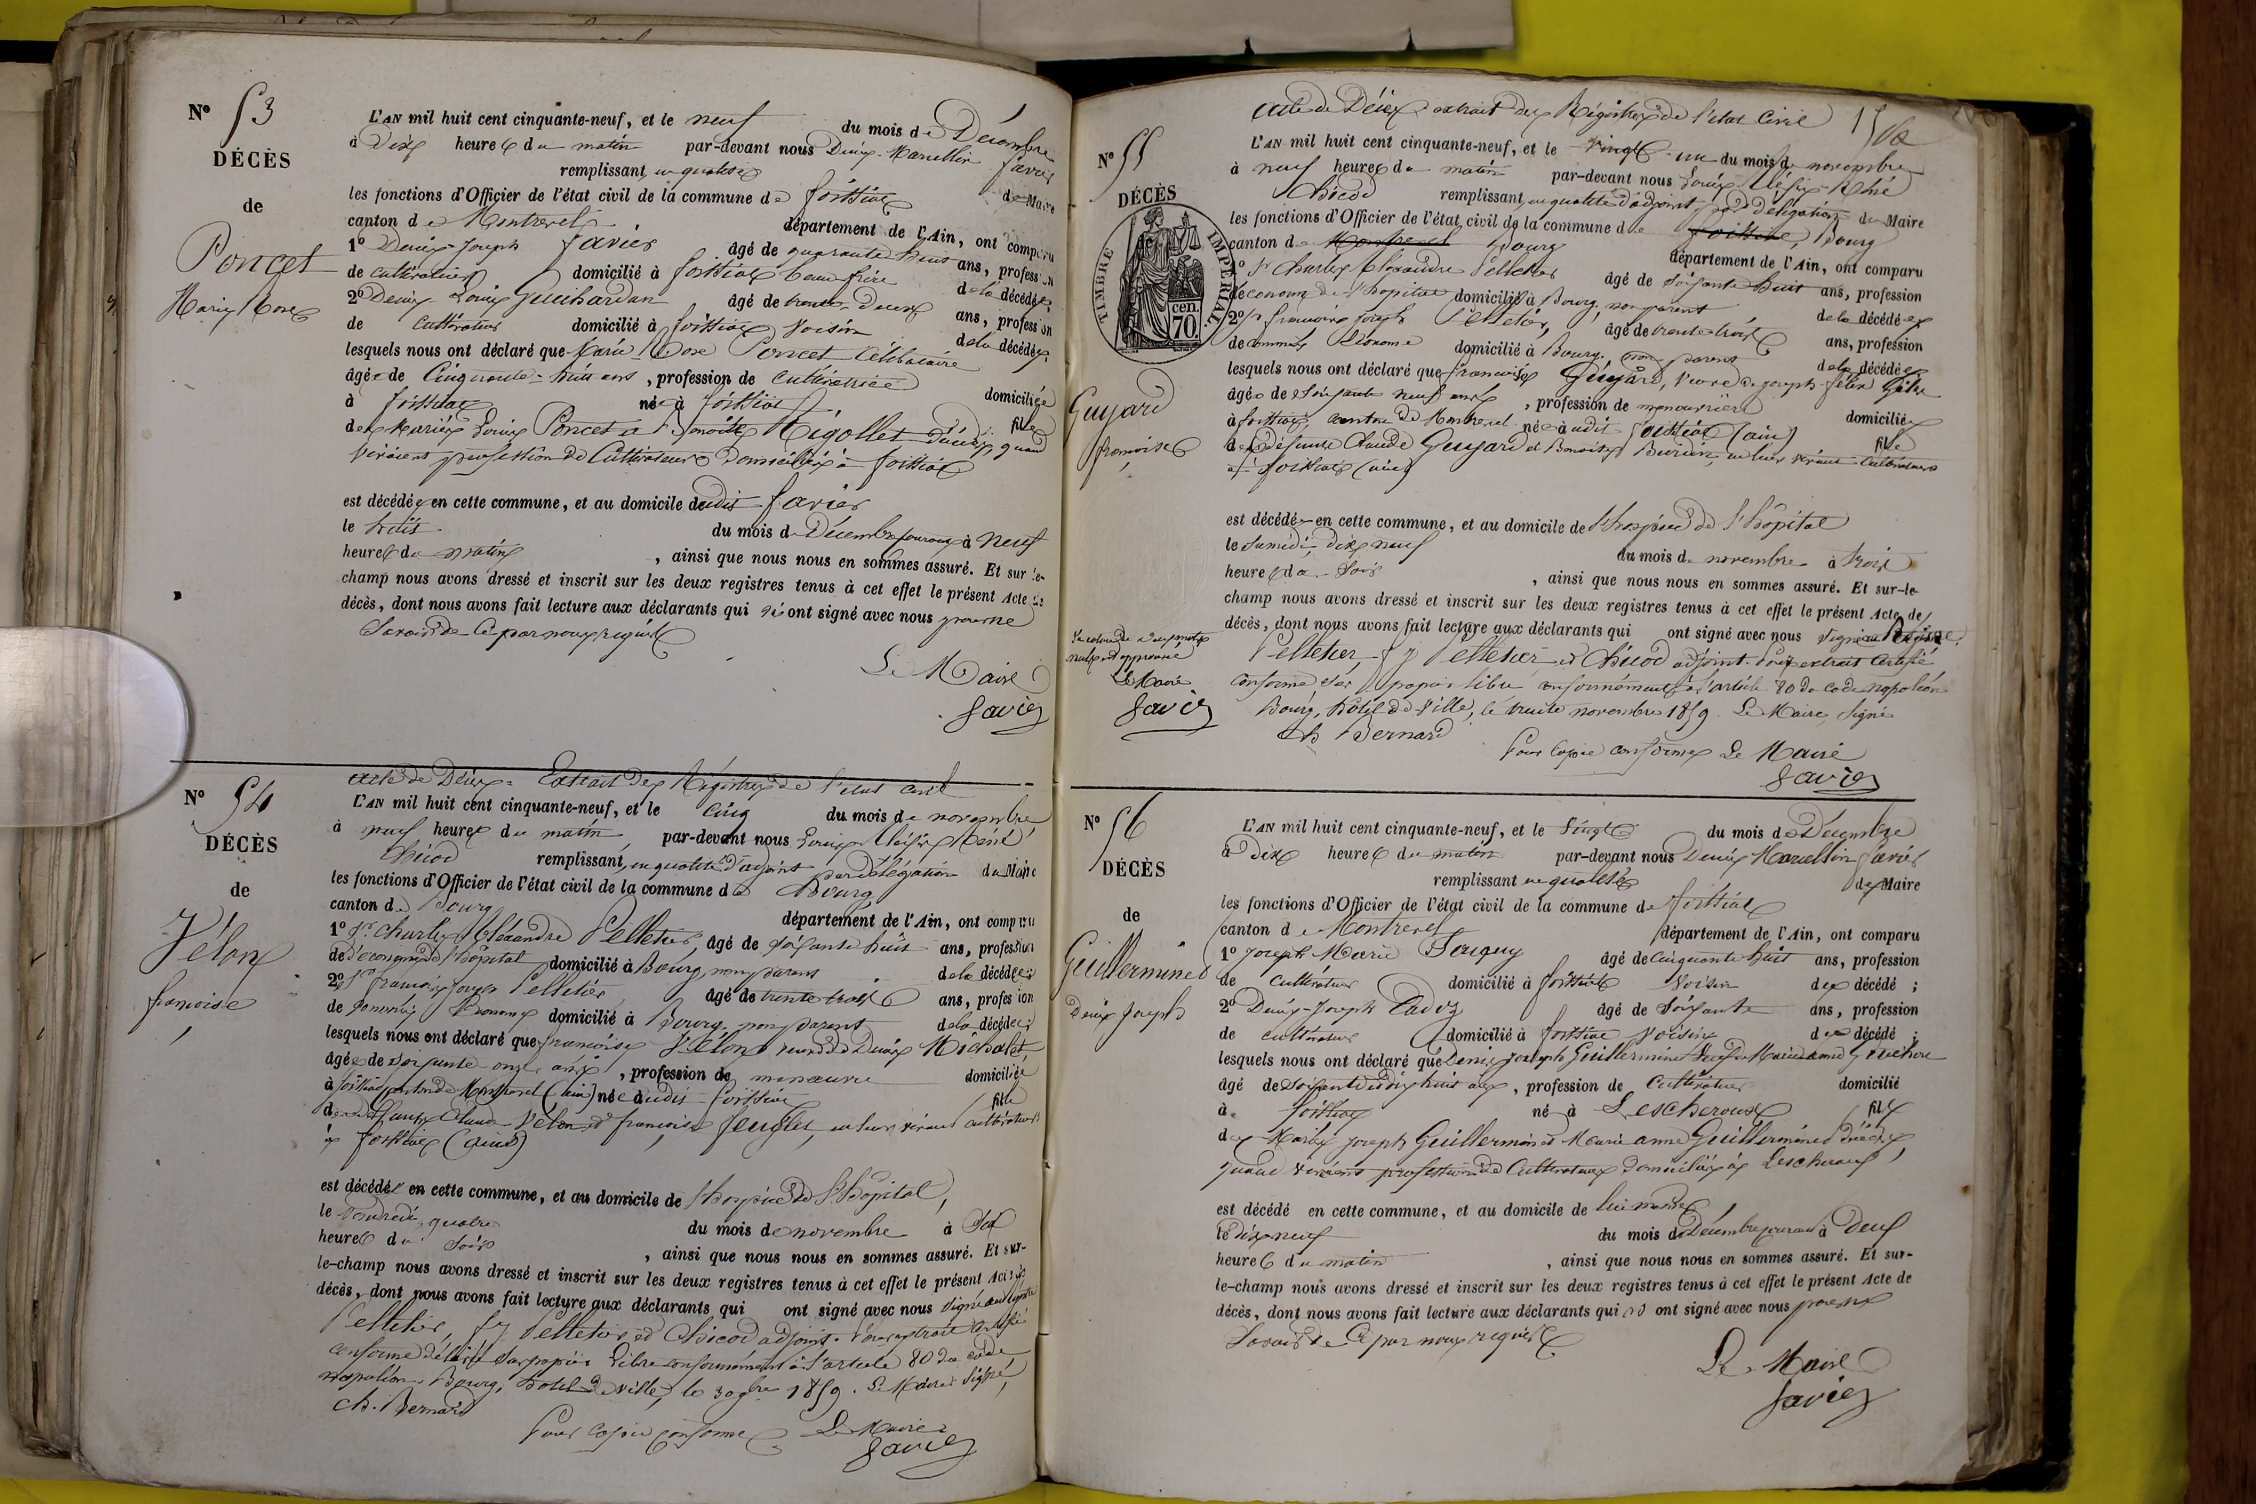 N° 53
DÉCÈS
de
Poncet
Marie Rose
L'AN mil huit cent cinquante-neuf, et le neuf du mois de Décembre
à Dix heures du matin par-devant nous Denis Marcellin Favier
remplissant en qualité de Maire
les fonctions d'Officier de l'état civil de la commune de foissiat
canton de Montrevel département de l'Ain, ont comparu
1° Denis Joseph Favier âgé de quarante huit ans, profession
de cultivateur domicilié à foissiat beau frère de la décédée
2° Denis Louis Guichardan âgé de trente deux ans, profession
de cultivateur domicilié à foissiat voisin de la décédée
lesquels nous ont déclaré que Marie Rose Poncet Célibataire
âgée de Cinquante-huit ans, profession de Cultivatrice domiciliée
à foissiat née à foissiat fille
de Marie Louis Poncet et Benoite Rigollet décédés quand
vivaient profession de Cultivateurs domiciliés à foissiat
est décédée en cette commune, et au domicile dudit favier
le huit du mois de Décembre courant à neuf
heures du matin, ainsi que nous nous en sommes assuré. Et sur-le-
champ nous avons dressé et inscrit sur les deux registres tenus à cet effet le présent Acte de
décès, dont nous avons fait lecture aux déclarants qui n'ont signé avec nous pour ne
Savoir de Ce par nous requis
Le Maire
Favier
N° 54
DÉCÈS
de
Vélon
françoise
acte de Décès Extrait des Régistres de l'état civil
L'AN mil huit cent cinquante-neuf, et le cinq du mois de novembre
à neuf heures du matin par-devant nous Louis Aléxis René
Chicod remplissant, en qualité d'adjoint par délégation du Maire
les fonctions d'Officier de l'état civil de la commune de Bourg
canton de Bourg département de l'Ain, ont comparu
1° Sr Charles Aléxandre Pelletier, âgé de soixante huit ans, profession
d'économe de l'hopital domicilié à Bourg, non parent de la décédée
2° Sr françois Joseph Pelletier âgé de trente trois ans, profession
de Commis Econome domicilié à Bourg, non parent de la décédée
lesquels nous ont déclaré que françoise Vélon veuve de Denis Michalet
âgée de soixante onze ans, profession de manœuvre domiciliée
à foissiat canton de Montrevel (ain) née audit foissiat fille
de défunts Claude Vélon et françoise feuglet, en leur vivant cultivateurs
à foissiat (ain)
est décédée en cette commune, et au domicile de l'hospice de l'hôpital,
le Vendredi quatre du mois de novembre à Six
heures du Soir, ainsi que nous nous en sommes assuré. Et sur-
le-champ nous avons dressé et inscrit sur les deux registres tenus à cet effet le présent Acte de
décès, dont nous avons fait lecture aux déclarants qui ont signé avec nous Signé au registre
Pelletier, f J Pelletier et Chicod adjoint. Pour extrait Certifié
conforme délivré Sur papier libre conformément à l'article 80 du code
napoléon. Bourg, hôtel de ville, le 30 9bre 1859. Le Maire Signé,
Ch. Bernard
Pour copie conforme Le Maire
Favier
156
acte de Décès extrait des Régistres de l'état Civil
N° 55
DÉCÈS
de
TIMBRE IMPÉRIAL
70 cen.
Guyard
françoise
L'AN mil huit cent cinquante-neuf, et le vingt un du mois de novembre
à neuf heures du matin par-devant nous Louis Aléxis René
Chicod remplissant, en qualité d'adjoint par délégation du Maire
les fonctions d'Officier de l'état civil de la commune de foissiat, Bourg
canton de Montrevel Bourg département de l'Ain, ont comparu
1° Sr Charles Aléxandre Pelletier âgé de soixante huit ans, profession
d'économe de l'hopital domicilié à Bourg, non parent de la décédée
2° Sr françois Joseph Pelletier, âgé de trente trois ans, profession
de commis Econome domicilié à Bourg, non parent de la décédée
lesquels nous ont déclaré que françoise Guyard, veuve de Joseph félix
âgée de soixante neuf ans, profession de manouvrière domiciliée
à foissiat, canton de Montrevel née audit foissiat (ain) fille
de défunts Claude Guyard et Benoite Buirin, en leur vivant Cultivateurs
à foissiat (ain)
est décédée en cette commune, et au domicile de l'hospice de l'hôpital
le Samedi Dix neuf du mois de novembre à trois
heures du Soir, ainsi que nous nous en sommes assuré. Et sur-le-
champ nous avons dressé et inscrit sur les deux registres tenus à cet effet le présent Acte de
décès, dont nous avons fait lecture aux déclarants qui ont signé avec nous Signé au Régistre
Pelletier, f J Pelletier et Chicod adjoint. Pour extrait Certifié
conforme Sur papier libre conformément à l'article 80 du code napoléon
Bourg, hôtel de Ville, le trente novembre 1859. Le Maire, Signé
Ch Bernard
Pour Copie conforme Le Maire
Favier
mots
nuls est approuvé
Le Maire
Favier
N° 56
DÉCÈS
de
Guillerminet
Denis Joseph
L'AN mil huit cent cinquante-neuf, et le Vingt du mois de Décembre
à Dix heures du matin par-devant nous Denis Marcellin Favier
remplissant en qualité de Maire
les fonctions d'Officier de l'état civil de la commune de foissiat
canton de Montrevel département de l'Ain, ont comparu
1° Joseph Marie Souguy âgé de cinquante huit ans, profession
de cultivateur domicilié à foissiat voisin du décédé ;
2° Denis Joseph Cadoz âgé de Soixante ans, profession
de cultivateur domicilié à foissiat voisin du décédé ;
lesquels nous ont déclaré que Denis Joseph Guillerminet Veuf de Marie anne
âgé de Soixante dix huit ans, profession de Cultivateur domicilié
à foissiat né à Lescheroux fils
de Marie Joseph Guillerminet et Marie anne Guillerminet décédés
quand vivaient profession de Cultivateurs domiciliés à Lescheroux
est décédé en cette commune, et au domicile de lui même,
le dix neuf du mois de Décembre courant à Deux
heures du matin, ainsi que nous nous en sommes assuré. Et sur-
le-champ nous avons dressé et inscrit sur les deux registres tenus à cet effet le présent Acte de
décès, dont nous avons fait lecture aux déclarants qui n'ont signé avec nous pour ne
Savoir de Ce par nous requis
Le Maire
Favier